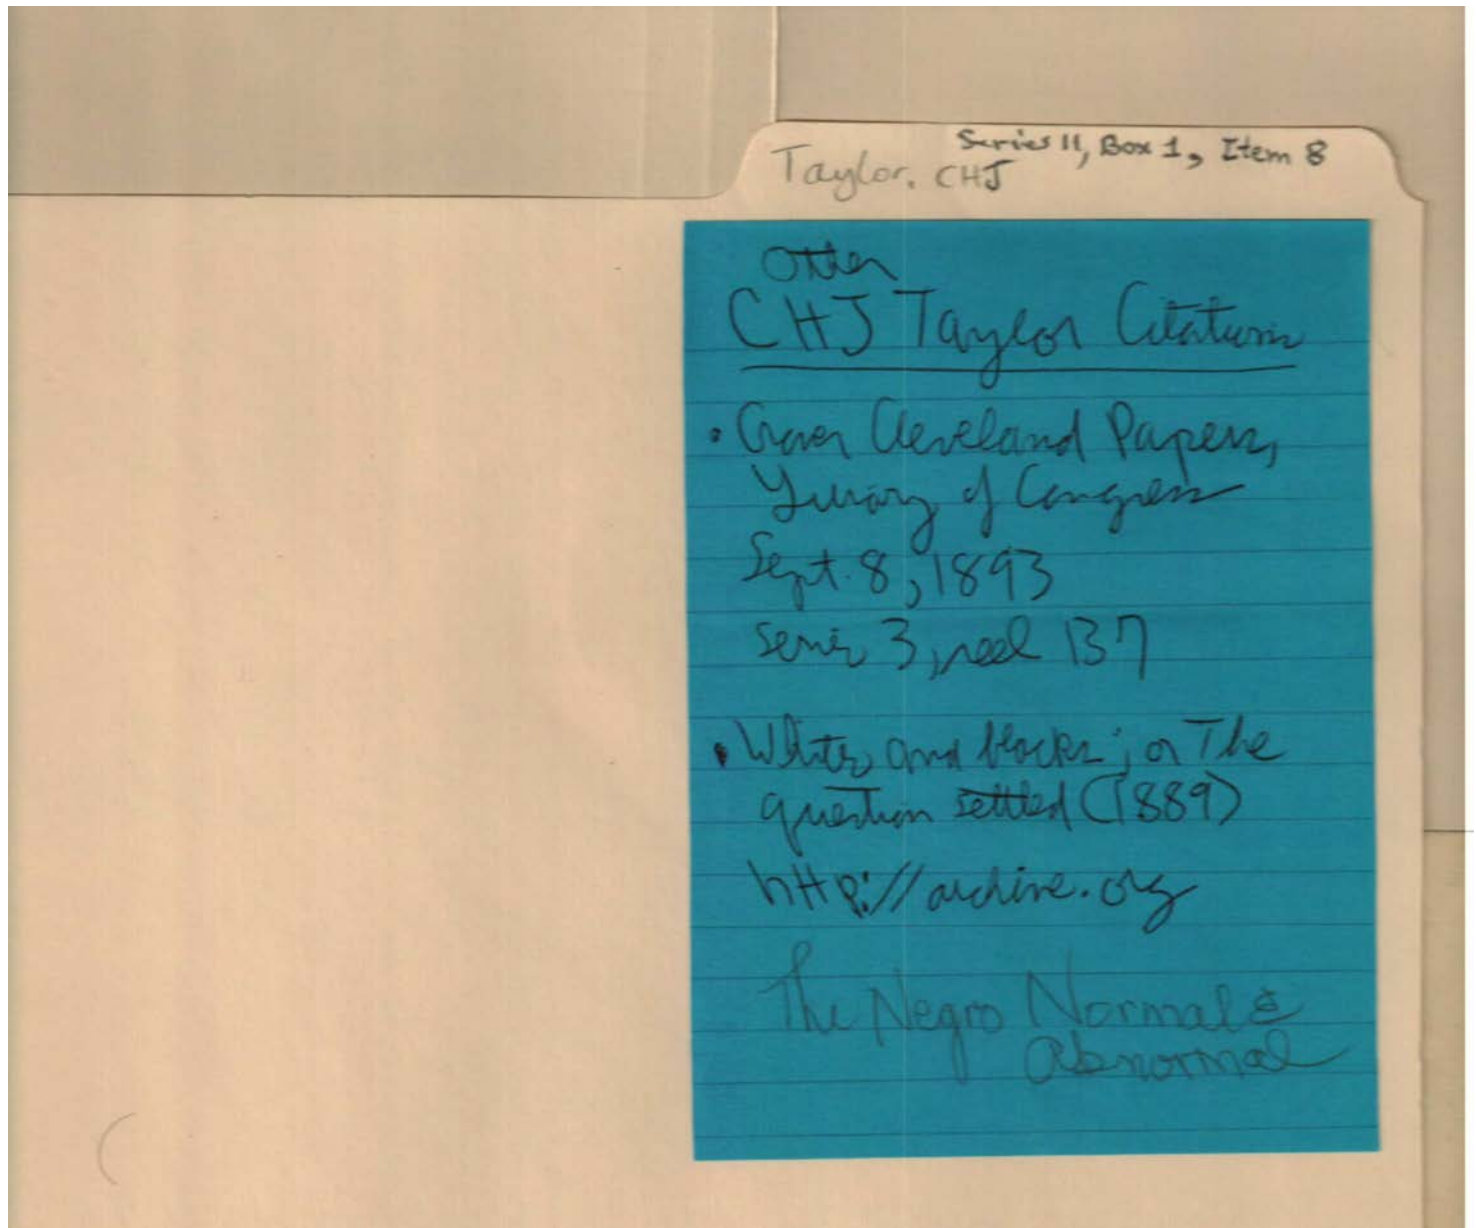 Series II, Box 1, Item 8
Taylor, CHJ
Other
CHJ Taylor Citations
• Grover Cleveland Papers,
Library of Congress
Sept. 8, 1893
series 3, reel 137
• Whites and blacks; or The
question settled (1889)
http://archive.org
The Negro Normal &
Abnormal